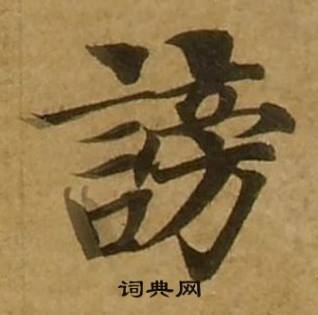 謗
词典网